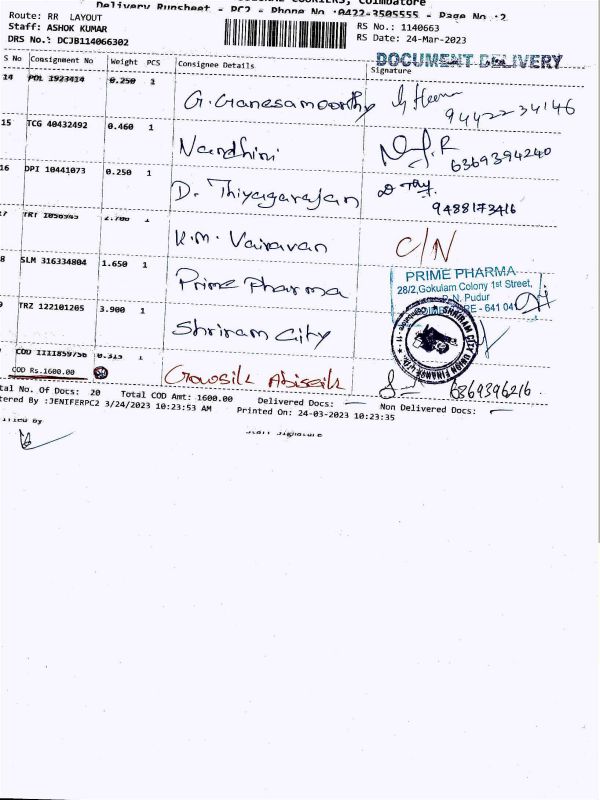 Delivery Runsheet - PC2 - Phone No :0422-3505555 - Page No :2
Route: RR LAYOUT
Staff: ASHOK KUMAR
DRS No.: DCJB114066302
RS No.: 1140663
RS Date: 24-Mar-2023
DOCUMENT DELIVERY
S No Consignment No Weight PCS Consignee Details Signature
14 POL 1923414 0.250 1 G. Ganesamoorthy 9442234146
15 TCG 40432492 0.460 1 Nandhini 6369394240
16 DPI 10441073 0.250 1 D. Thiyagarajan 9488173416
TRT 1056945 2.700 1 K.M. Vairavan C/N
8 SLM 316334804 1.650 1 Prime Pharma
PRIME PHARMA
28/2,Gokulam Colony 1st Street,
P. N. Pudur
RE - 641 041
9 TRZ 122101205 3.900 1 Shriram City
SHRIRAM CITY UNION FINANCE
COD 1111859756 0.315 1
COD Rs.1600.00 Gowsik Abiseik 6369396216
tal No. Of Docs: 20 Total COD Amt: 1600.00 Delivered Docs: Non Delivered Docs:
tered By :JENIFERPC2 3/24/2023 10:23:53 AM Printed On: 24-03-2023 10:23:35
Staff Signature